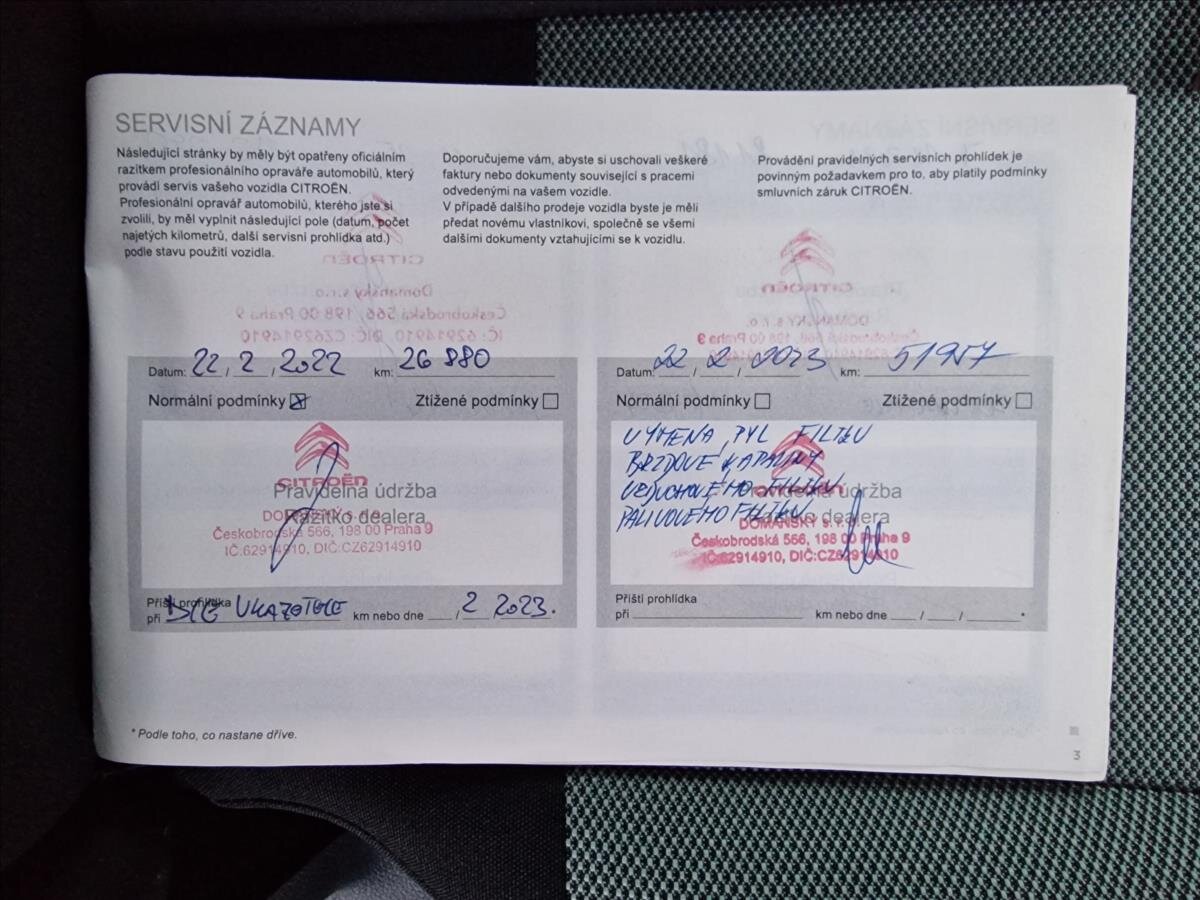 SERVISNÍ ZÁZNAMY
Následující stránky by měly být opatřeny oficiálním
razítkem profesionálního opraváře automobilů, který
provádí servis vašeho vozidla CITROËN.
Profesionální opravář automobilů, kterého jste si
zvolili, by měl vyplnit následující pole (datum, počet
najetých kilometrů, další servisní prohlídka atd.)
podle stavu použití vozidla.
Doporučujeme vám, abyste si uschovali veškeré
faktury nebo dokumenty související s pracemi
odvedenými na vašem vozidle.
V případě dalšího prodeje vozidla byste je měli
předat novému vlastníkovi, společně se všemi
dalšími dokumenty vztahujícími se k vozidlu.
Provádění pravidelných servisních prohlídek je
povinným požadavkem pro to, aby platily podmínky
smluvních záruk CITROËN.
Datum: 22 / 2 / 2022 km: 26 880
Normální podmínky Ztížené podmínky
CITROËN
Pravidelná údržba
Razítko dealera
DOMANSKÝ s.r.o.
Českobrodská 566, 198 00 Praha 9
IČ:62914910, DIČ:CZ62914910
Příští prohlídka
při DLE UKAZATELE km nebo dne / 2 2023.
Datum: 22 / 2 / 2023 km: 51957
Normální podmínky Ztížené podmínky
VÝMĚNA PYL FILTRU
BRZDOVÉ KAPALINY
VZDUCHOVÉHO FILTRU
PALIVOVÉHO FILTRU
Pravidelná údržba
Razítko dealera
DOMANSKÝ s.r.o.
Českobrodská 566, 198 00 Praha 9
IČ:62914910, DIČ:CZ62914910
Příští prohlídka
při km nebo dne / / *
* Podle toho, co nastane dříve.
3